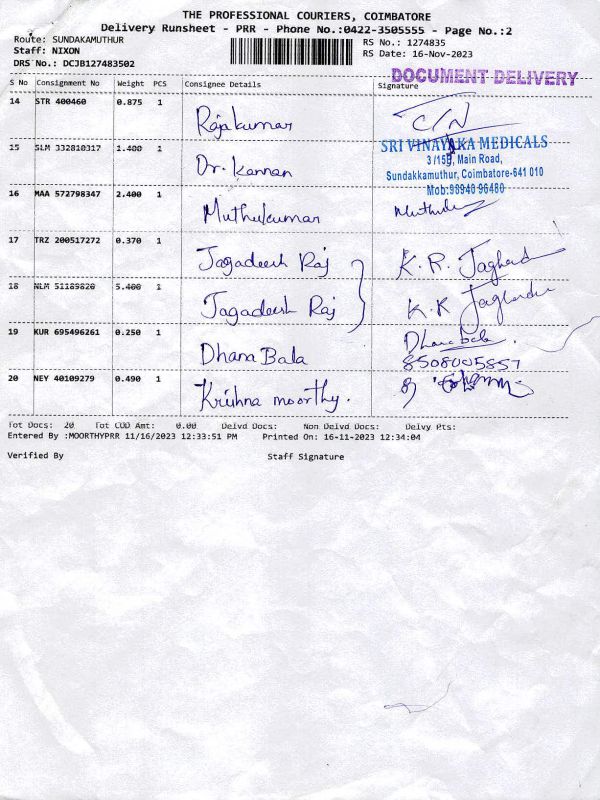 THE PROFESSIONAL COURIERS, COIMBATORE
Delivery Runsheet - PRR - Phone No.:0422-3505555 - Page No.:2
Route: SUNDAKAMUTHUR
Staff: NIXON
DRS No.: DCJB127483502
RS No.: 1274835
RS Date: 16-Nov-2023
DOCUMENT DELIVERY
S No Consignment No Weight PCS Consignee Details Signature
14 STR 400460 0.875 1 Rajakumar C/N
15 SLM 332810317 1.400 1 Dr. Kannan
SRI VINAYAKA MEDICALS
3/159, Main Road,
Sundakkamuthur, Coimbatore-641 010
Mob:98940 96480
16 MAA 572798347 2.400 1 Muthukumar
17 TRZ 200517272 0.370 1 Jagadeesh Raj K. R.
18 NLM 51189820 5.400 1 Jagadeesh Raj K. K
19 KUR 695496261 0.250 1 Dhana Bala Dhana Bala
8508005857
20 NEY 40109279 0.490 1 Krishna moorthy.
Tot Docs: 20 Tot COD Amt: 0.00 Delvd Docs: Non Delvd Docs: Delvy Pts:
Entered By :MOORTHYPRR 11/16/2023 12:33:51 PM Printed On: 16-11-2023 12:34:04
Verified By Staff Signature